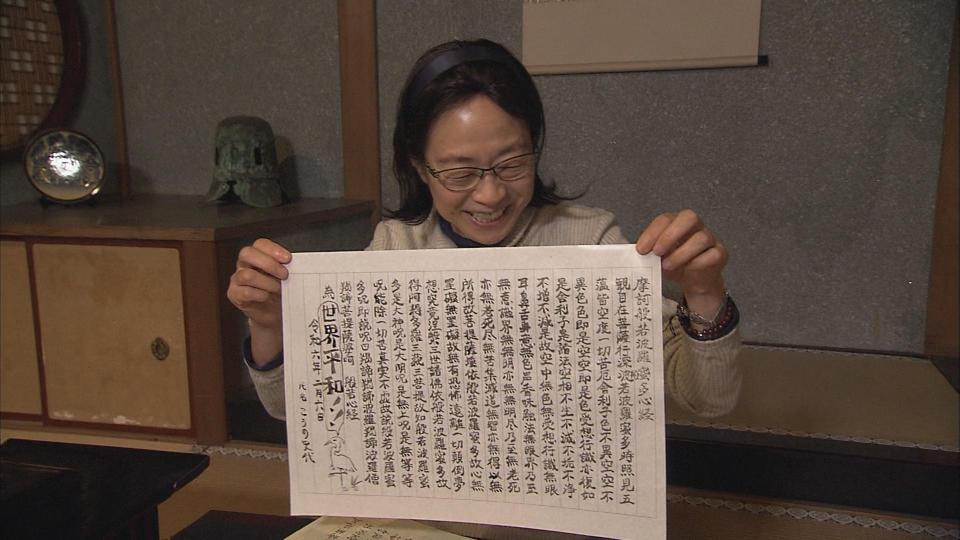 摩訶般若波羅蜜多心経
観自在菩薩行深般若波羅蜜多時照見五
蘊皆空度一切苦厄舎利子色不異空空不
異色色即是空空即是色受想行識亦復如
是舎利子是諸法空相不生不滅不垢不浄
不増不減是故空中無色無受想行識無眼
耳鼻舌身意無色声香味触法無眼界乃至
無意識界無無明亦無無明尽乃至無老死
亦無老死尽無苦集滅道無智亦無得以無
所得故菩提薩埵依般若波羅蜜多故心無
罣礙無罣礙故無有恐怖遠離一切顛倒夢
想究竟涅槃三世諸佛依般若波羅蜜多故
得阿耨多羅三藐三菩提故知般若波羅蜜
多是大神呪是大明呪是無上呪是無等等
呪能除一切苦真実不虚故説般若波羅蜜
多呪即説呪曰羯諦羯諦波羅羯諦波羅僧
羯諦菩提薩婆訶 般若心経
為 世界平和!!
令和六年